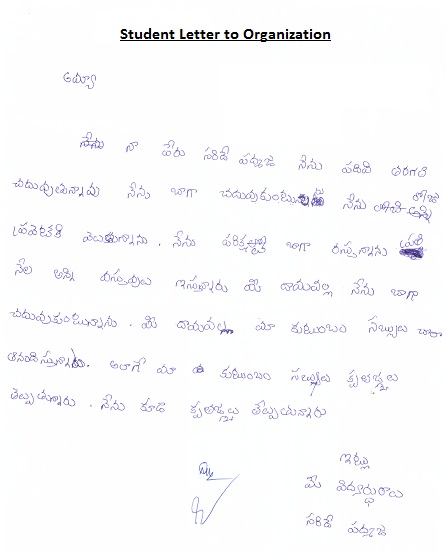 Student Letter to Organization
అయ్యా
నేను నా పేరు సరిడే పద్మాజ నేను పదివి తరగతి
చదువుతున్నావు నేను బాగా చదువుకుంటున్నాను నేను రోజు అన్ని
వెలుతున్నాను. నేను పరిక్షల్లు బాగా రాస్తున్నాను ప్రతి
నేల అన్ని వస్తువులు ఇస్తున్నారు మీ దాయవల్ల నేను బాగా
చదువుకుంటున్నాను. మీ దాయవల్ల మా కుటుంబం సభ్యులు చాల
ఆనందిస్తున్నారు. అలాగే మా కుటుంబం సభ్యులు కృతజ్ఞలు
తెల్పుతున్నారు. నేను కూడా కృతజ్ఞలు తేల్పుతున్నారు
ఇట్లు
మీ విద్యార్ధురాలు
సరిడే పద్మాజ